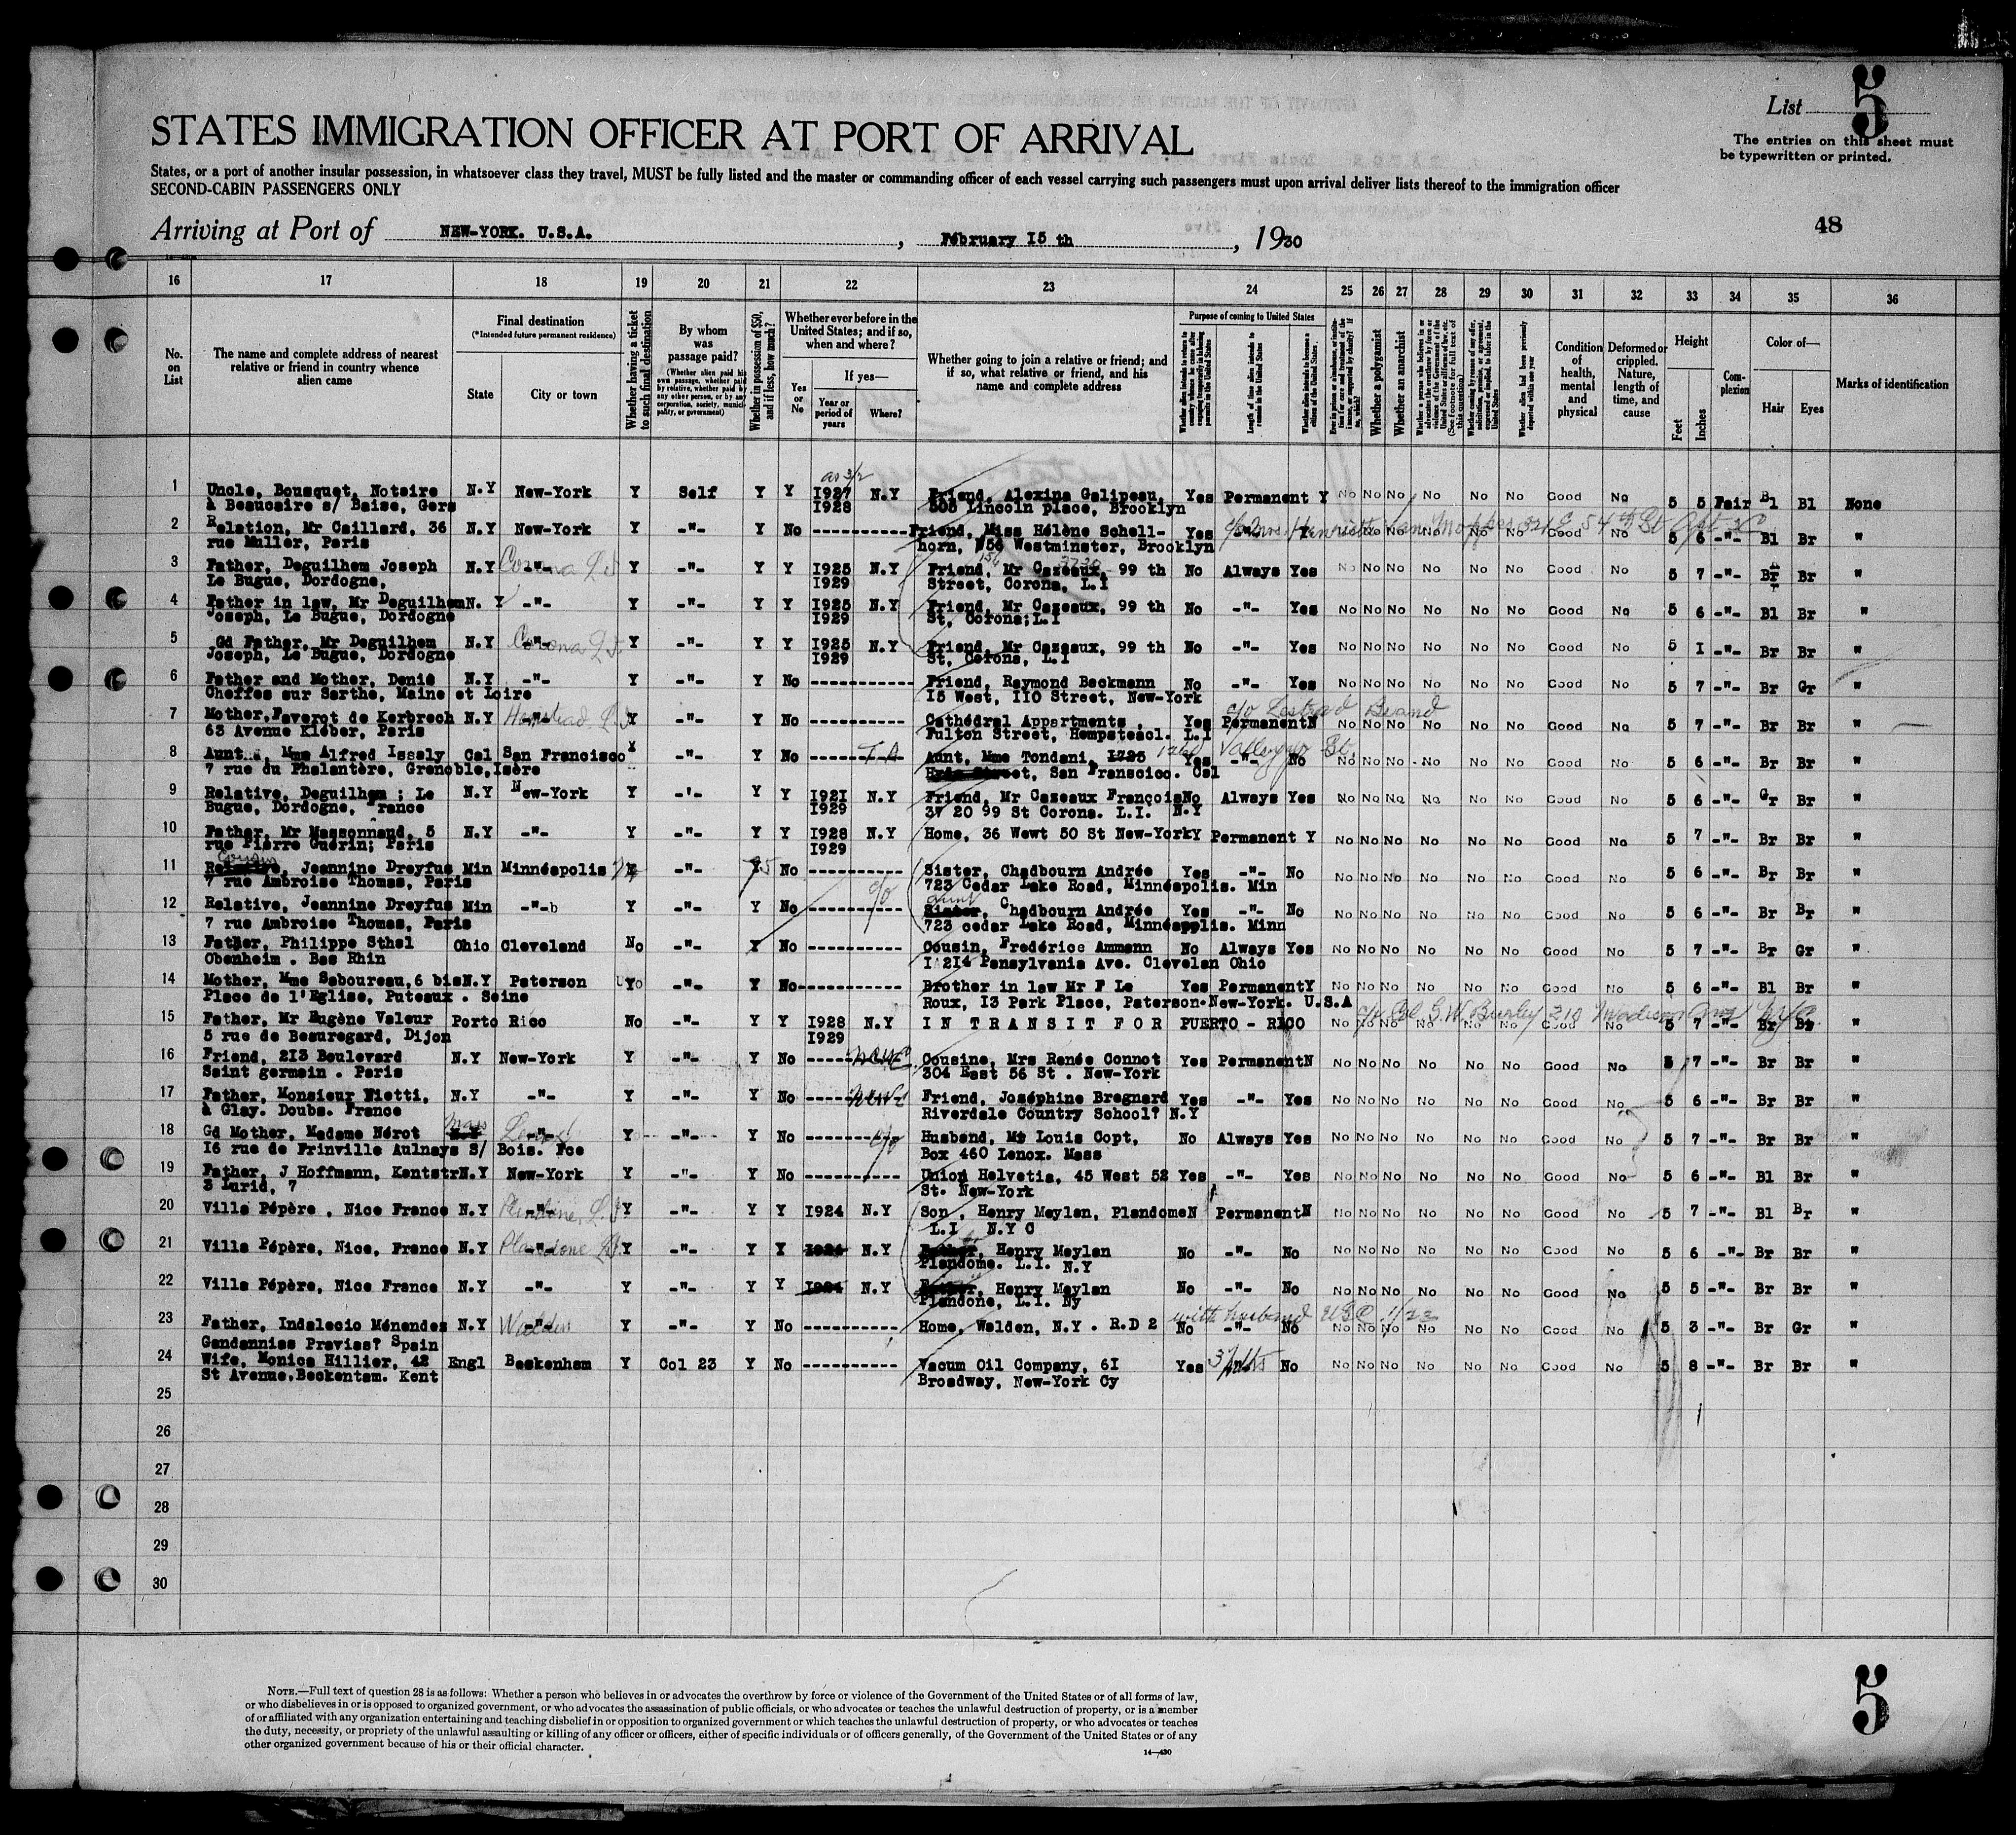 List 5
The entries on this sheet must
be typewritten or printed.
STATES IMMIGRATION OFFICER AT PORT OF ARRIVAL
States, or a port of another insular possession, in whatsoever class they travel, MUST be fully listed and the master or commanding officer of each vessel carrying such passengers must upon arrival deliver lists thereof to the immigration officer
SECOND-CABIN PASSENGERS ONLY
48
Arriving at Port of NEW-YORK. U.S.A. , February I5 th , 1930
16 17 18 19 20 21 22 23 24 25 26 27 28 29 30 31 32 33 34 35 36
No. on List
The name and complete address of nearest relative or friend in country whence alien came
Final destination
(*Intended future permanent residence)
State City or town
Whether having a ticket to such final destination
By whom was passage paid?
(Whether alien paid his own passage, whether paid by relative, whether paid by any other person, or by any corporation, society, municipality, or government)
Whether in possession of $50, and if less, how much?
Whether ever before in the United States; and if so, when and where?
Yes or No
If yes—
Year or period of years Where?
Whether going to join a relative or friend; and if so, what relative or friend, and his name and complete address
Purpose of coming to United States
Length of time alien intends to remain in the United States
Whether a polygamist
Whether an anarchist
Condition of health, mental and physical
Deformed or crippled. Nature, length of time, and cause
Height
Feet Inches
Complexion
Color of—
Hair Eyes
Marks of identification
1 Uncle, Bousquet, Notaire N.Y New-York Y Self Y Y I927 N.Y Friend, Alexina Galipeau, Yes Permanent Y No No No No No No Good No 5 5 Fair Bl Bl None
à Beaucaire s/ Baise, Gers I928 505 Lincoln place, Brooklyn
2 Relation, Mr Caillard, 36 N.Y New-York Y -"- Y No ---------- Friend, Miss Hélène Schell- Yes -"- Y No No No No No No Good No 5 6 -"- Bl Br "
rue Muller, Paris horn, 156 Westminster, Brooklyn
3 Father, Deguilhem Joseph N.Y Corona L.I -"- Y -"- Y Y I925 N.Y Friend, Mr Cazeaux, 99 th No Always Yes No No No No No No Good No 5 7 -"- Br Br "
Le Bugue, Dordogne, I929 Street, Corona, L.I
4 Father in law, Mr Deguilhem N.Y -"- Y -"- Y Y I925 N.Y Friend, Mr Cazeaux, 99 th No -"- Yes No No No No No No Good No 5 6 -"- Bl Br "
Joseph, Le Bugue, Dordogne I929 St, Corona; L.I
5 Gd Father, Mr Deguilhem N.Y Corona L.I -"- Y -"- Y Y I925 N.Y Friend, Mr Cazeaux, 99 th No -"- Yes No No No No No No Good No 5 I -"- Br Br "
Joseph, Le Bugue, Dordogne I929 St, Corona, L.I
6 Father and Mother, Denié N.Y -"- Y -"- Y No ---------- Friend, Raymond Beckmann No -"- Yes No No No No No No Good No 5 7 -"- Br Gr "
Cheffes sur Sarthe, Maine et Loire I5 West, II0 Street, New-York
7 Mother, Faverot de Kerbrech N.Y -"- Y -"- Y No ---------- Cathédral Appartments , Yes Permanent N No No No No No No Good No 5 7 -"- Br Br "
63 Avenue Kléber, Paris Fulton Street, Hempsteacl. L.I
8 Aunt, Mme Alfred Issaly Cal San Francisco Y -"- Y No ---------- Aunt, Mme Tondani, I725 Yes -"- No No No No No No No Good No 5 6 -"- Br Br "
7 rue du Phalantère, Grenoble, Isère Street, San Franscico. Cal
9 Relative, Deguilhem ; Le N.Y New-York Y -'- Y Y I921 N.Y Friend, Mr Cazeaux François No Always Yes No No No No No No Good No 5 6 -"- Gr Br "
Bugue, Dordogne, France I929 3V 20 99 St Corona. L.I. N.Y
10 Father, Mr Massonnaud, 5 N.Y -"- Y -"- Y Y I928 N.Y Home, 36 Wewt 50 St New-York Y Permanent Y No No No No No No Good No 5 7 -"- Br Br "
rue Pierre Guérin; Paris I929
11 Cousin Relative, Jeannine Dreyfus Min Minnéapolis -"- No ---------- Sister, Chadbourn Andrée Yes -"- No No No No No No No Good No 5 6 -"- Br Br "
7 rue Ambroise Thomas, Paris 723 Cedar Lake Road, Minnéapolis. Min
12 Relative, Jeannine Dreyfus Min -"-b Y -"- Y No ---------- aunt Sister, Chadbourn Andrée Yes -"- No No No No No No No Good No 5 6 -"- Br Br "
7 rue Ambroise Thomas, Paris 723 cedar Lake Road, Minnéapplis. Minn
13 Father, Philippe Sthal Ohio Cleveland No -"- Y No ---------- Cousin, Fredérice Ammann No Always Yes No No No No No No Good No 5 7 -"- Br Gr "
Obenheim . Bas Rhin I 2I4 Pensylvania Ave. Clevelan Ohio
14 Mother, Mme Saboureau, 6 bis N.Y Paterson -"- Y No ---------- Brother in law Mr F Le Yes Permanent Y No No No No No No Good No 5 6 -"- Bl Br "
Place de l'Eglise, Puteaux . Seine Roux, I3 Park Place, Paterson-New-York. U.S.A
15 Father, Mr Eugène Valeur Porto Rico No -"- Y Y I928 N.Y I N T R A N S I T F O R PUERTO - RICO No No No No No No Good No 5 7 -"- Br Br "
5 rue de Beauregard, Dijon I929
16 Friend, 2I3 Boulevard N.Y New-York Y -"- Y No ---------- Cousine, Mrs Renée Connot Yes Permanent N No No No No No No Good No 5 7 -"- Br Br "
Saint germain . Paris 304 East 56 St . New-York
17 Father, Monsieur Nietti, N.Y -"- Y -"- Y No ---------- Friend, Joséphine Bregnard Yes -"- Yes No No No No No No Good No 5 6 -"- Br Br "
à Glay. Doubs. France Riverdale Country School? N.Y
18 Gd Mother, Madame Nérot Mass -"- Y -"- Y No ---------- Husband, Mr Louis Copt, No Always Yes No No No No No No Good No 5 7 -"- Br Br "
I6 rue de Frinville Aulnays S/ Bois. Fce Box 460 Lenox. Mass
19 Father, J Hoffmann, Kentstr N.Y New-York Y -"- Y No ---------- Union Helvetia, 45 West 52 Yes -"- Yes No No No No No No Good No 5 6 -"- Bl Br "
3 Lurid, 7 St. New-York
20 Villa Pépère , Nice France N.Y -"- Y -"- Y Y I924 N.Y Son , Henry Meylan, Plandome N Permanent N No No No No No No Good No 5 7 -"- Bl Br "
L.I. N.Y C
21 Villa Pépère, Nice, France N.Y Plandone L.I. -"- Y -"- Y Y I924 N.Y Father, Henry Meylan No -"- No No No No No No No Good No 5 6 -"- Br Br "
Plandome. L.I. N.Y
22 Villa Pépère, Nice France N.Y -"- Y -"- Y Y I924 N.Y Henry Meylan No -"- No No No No No No No Good No 5 5 -"- Br Br "
Plandone, L.I. Ny
with husband
23 Father, Indalecio Ménendes N.Y Walden -"- Y -"- Y No ---------- Home, Walden, N.Y . R.D 2 No -"- No No No No No No No Good No 5 3 -"- Br Gr "
Gandannias Pravias? Spain
24 Wife, Monica Hillier, 42 Engl Beskenham Y Col 23 Y No ---------- Vacum Oil Company, 6I Yes No No No No No No No Good No 5 8 -"- Br Br "
St Avenue, Beckentam. Kent Broadway, New-York Cy
25
26
27
28
29
30
NOTE.—Full text of question 28 is as follows: Whether a person who believes in or advocates the overthrow by force or violence of the Government of the United States or of all forms of law,
or who disbelieves in or is opposed to organized government, or who advocates the assassination of public officials, or who advocates or teaches the unlawful destruction of property, or is a member
of or affiliated with any organization entertaining and teaching disbelief in or opposition to organized government or which teaches the unlawful destruction of property, or who advocates or teaches
the duty, necessity, or propriety of the unlawful assaulting or killing of any officer or officers, either of specific individuals or of officers generally, of the Government of the United States or of any
other organized government because of his or their official character.
14—430
5